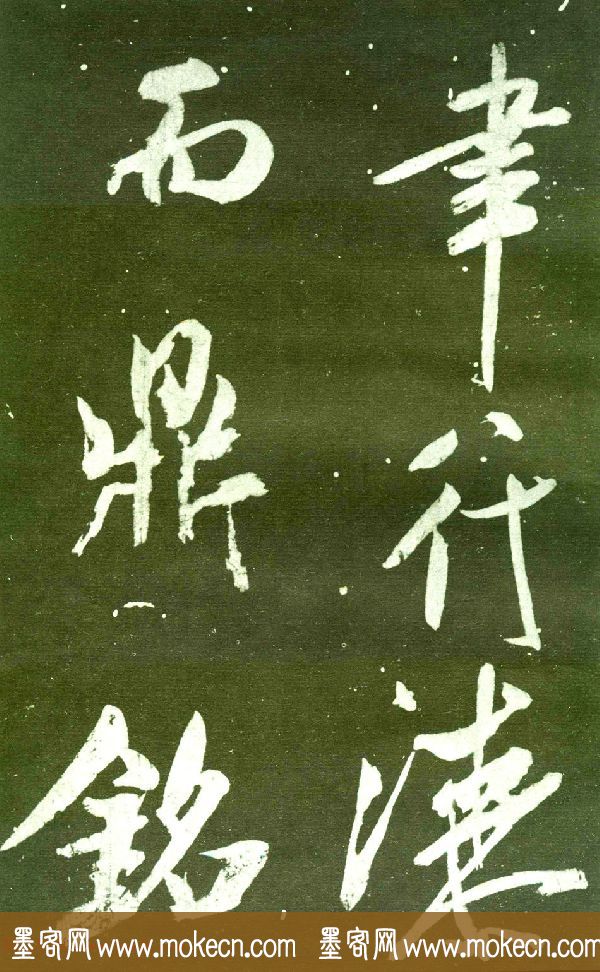 聿行
而鼎銘
墨客网 www.mokecn.com 墨客网 www.mokecn.com